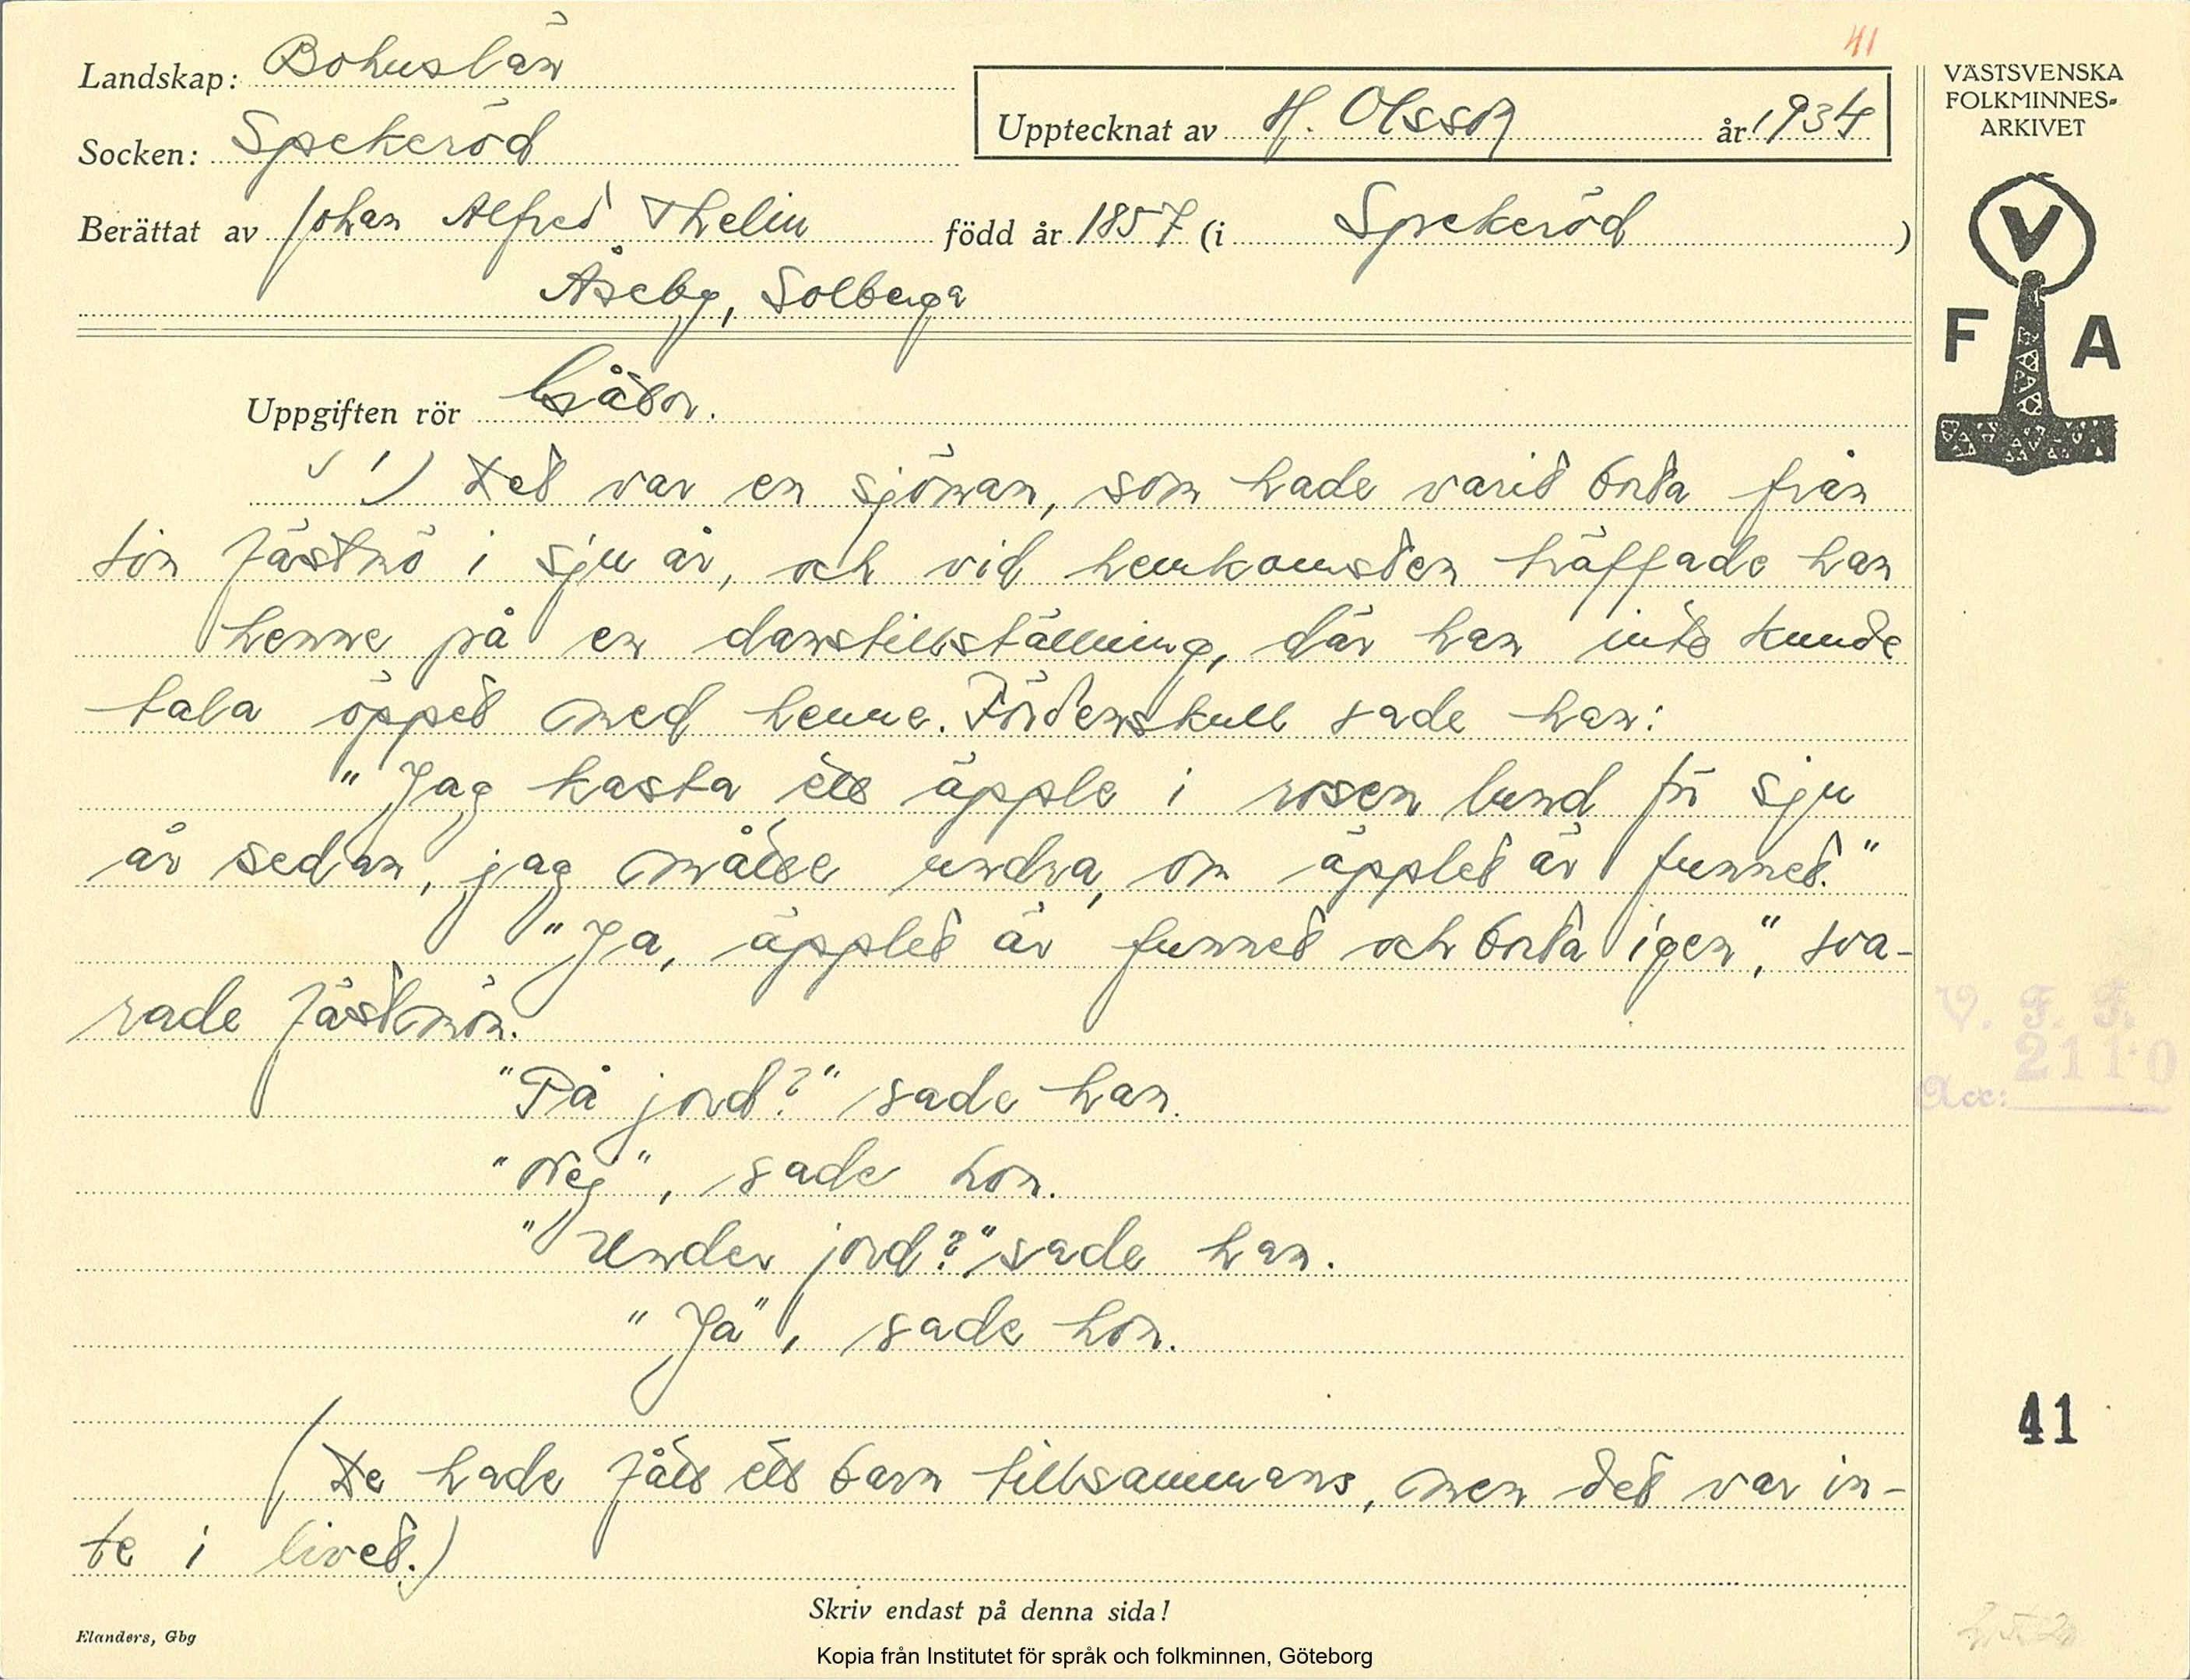 41
Landskap: Bohuslän
Socken: Spekeröd
Upptecknat av H. Olsson år 1934
Berättat av Johan Alfred Thelin född år 1857 (i Spekeröd)
Åseby, Solberga
VÄSTSVENSKA
FOLKMINNES-
ARKIVET
V
F A
Uppgiften rör Gåtor.
1) Det var en sjöman, som hade varit borta från
sin fästmö i sju år, och vid hemkomsten träffade han
henne på en danstillställning, där han inte kunde
tala öppet med henne. Fördenskull sade han:
"Jag kasta ett äpple i rosen lund för sju
år sedan, jag måtte undra, om äpplet är funnet."
"Ja, äpplet är funnet och borta igen", sva-
rade fästmön.
"På jord?" sade han.
"Nej", sade hon.
"Under jord?" sade han.
"Ja", sade hon.
(De hade fått ett barn tillsammans, men det var in-
te i livet.)
V. F. F.
2110
Acc:
41
Skriv endast på denna sida!
Elanders, Gbg
Kopia från Institutet för språk och folkminnen, Göteborg